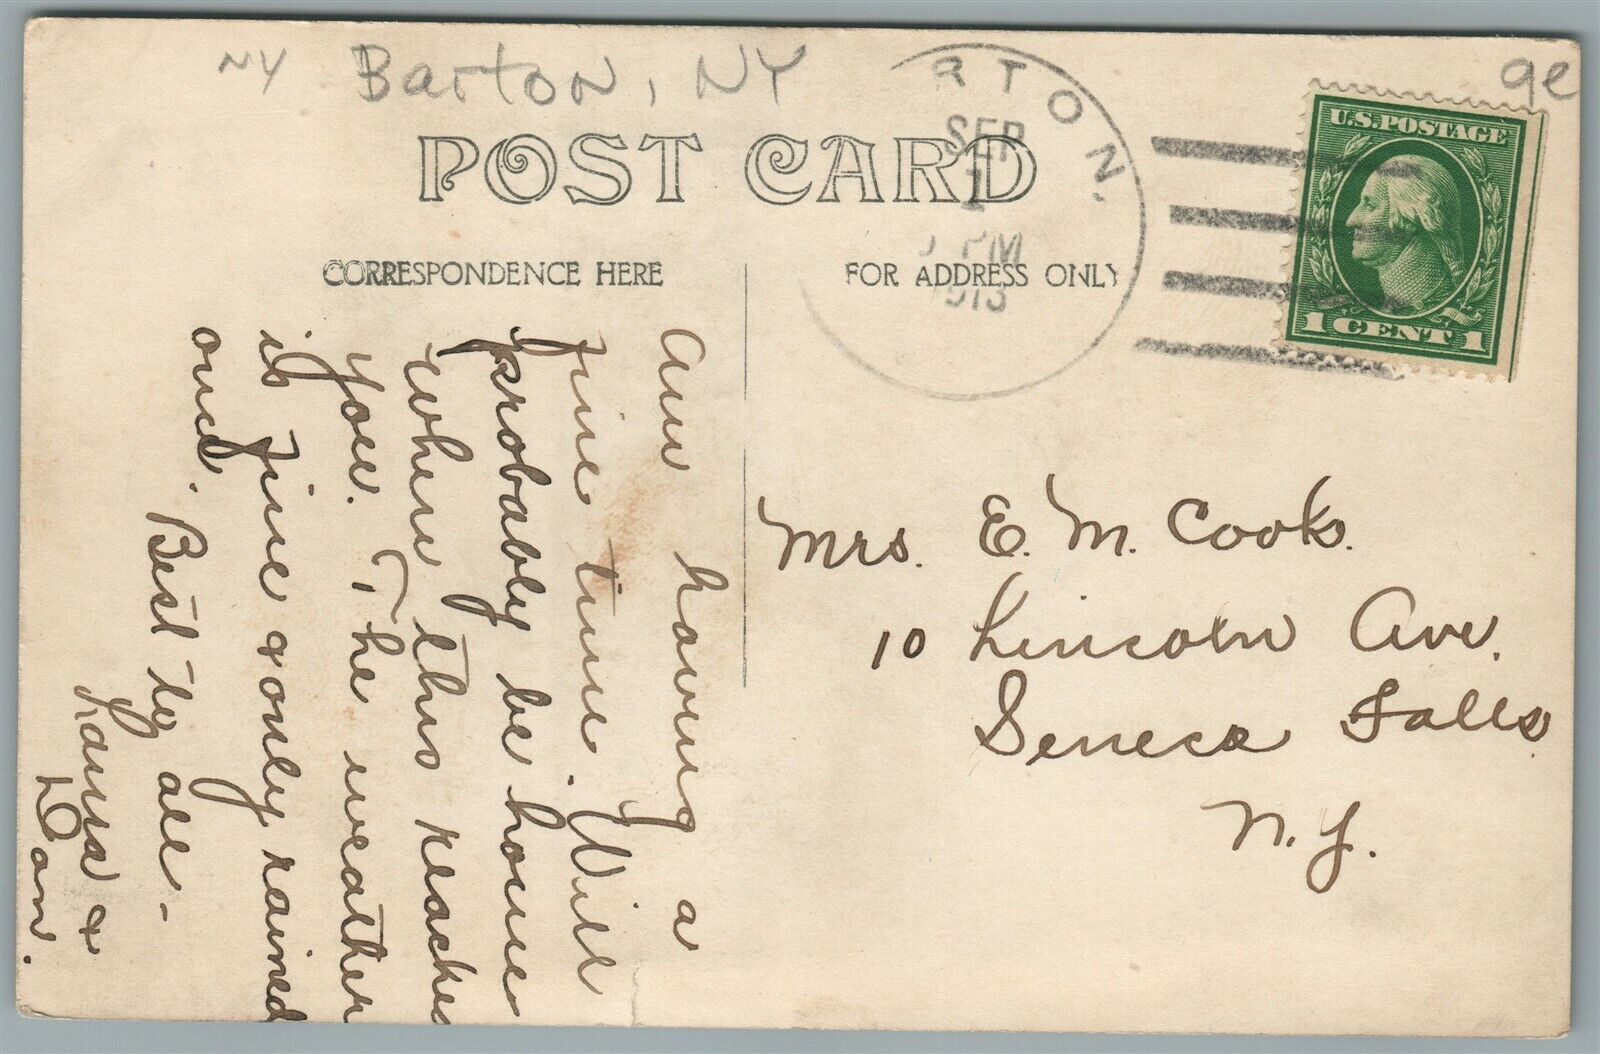 NY Barton, NY
9e
POST CARD
CORRESPONDENCE HERE
FOR ADDRESS ONLY
RTON.
SEP
1
PM
1913
U.S. POSTAGE
1 CENT 1
Am having a
fine time. Will
probably be home
when this reaches
you. The weather
is fine & only rained
once. Best to all -
Laura &
Dan.
Mrs. E. M. Cook.
10 Lincoln Ave.
Seneca Falls
N.Y.